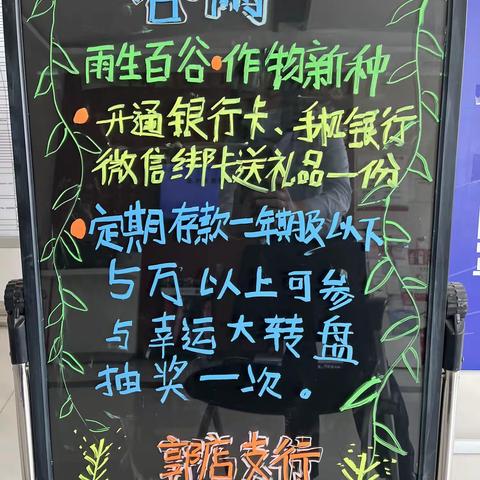 谷雨
雨生百谷·作物新种
·开通银行卡、手机银行
微信绑卡送礼品一份
·定期存款一年期及以下
5万以上可参
与幸运大转盘
抽奖一次。
郭店支行